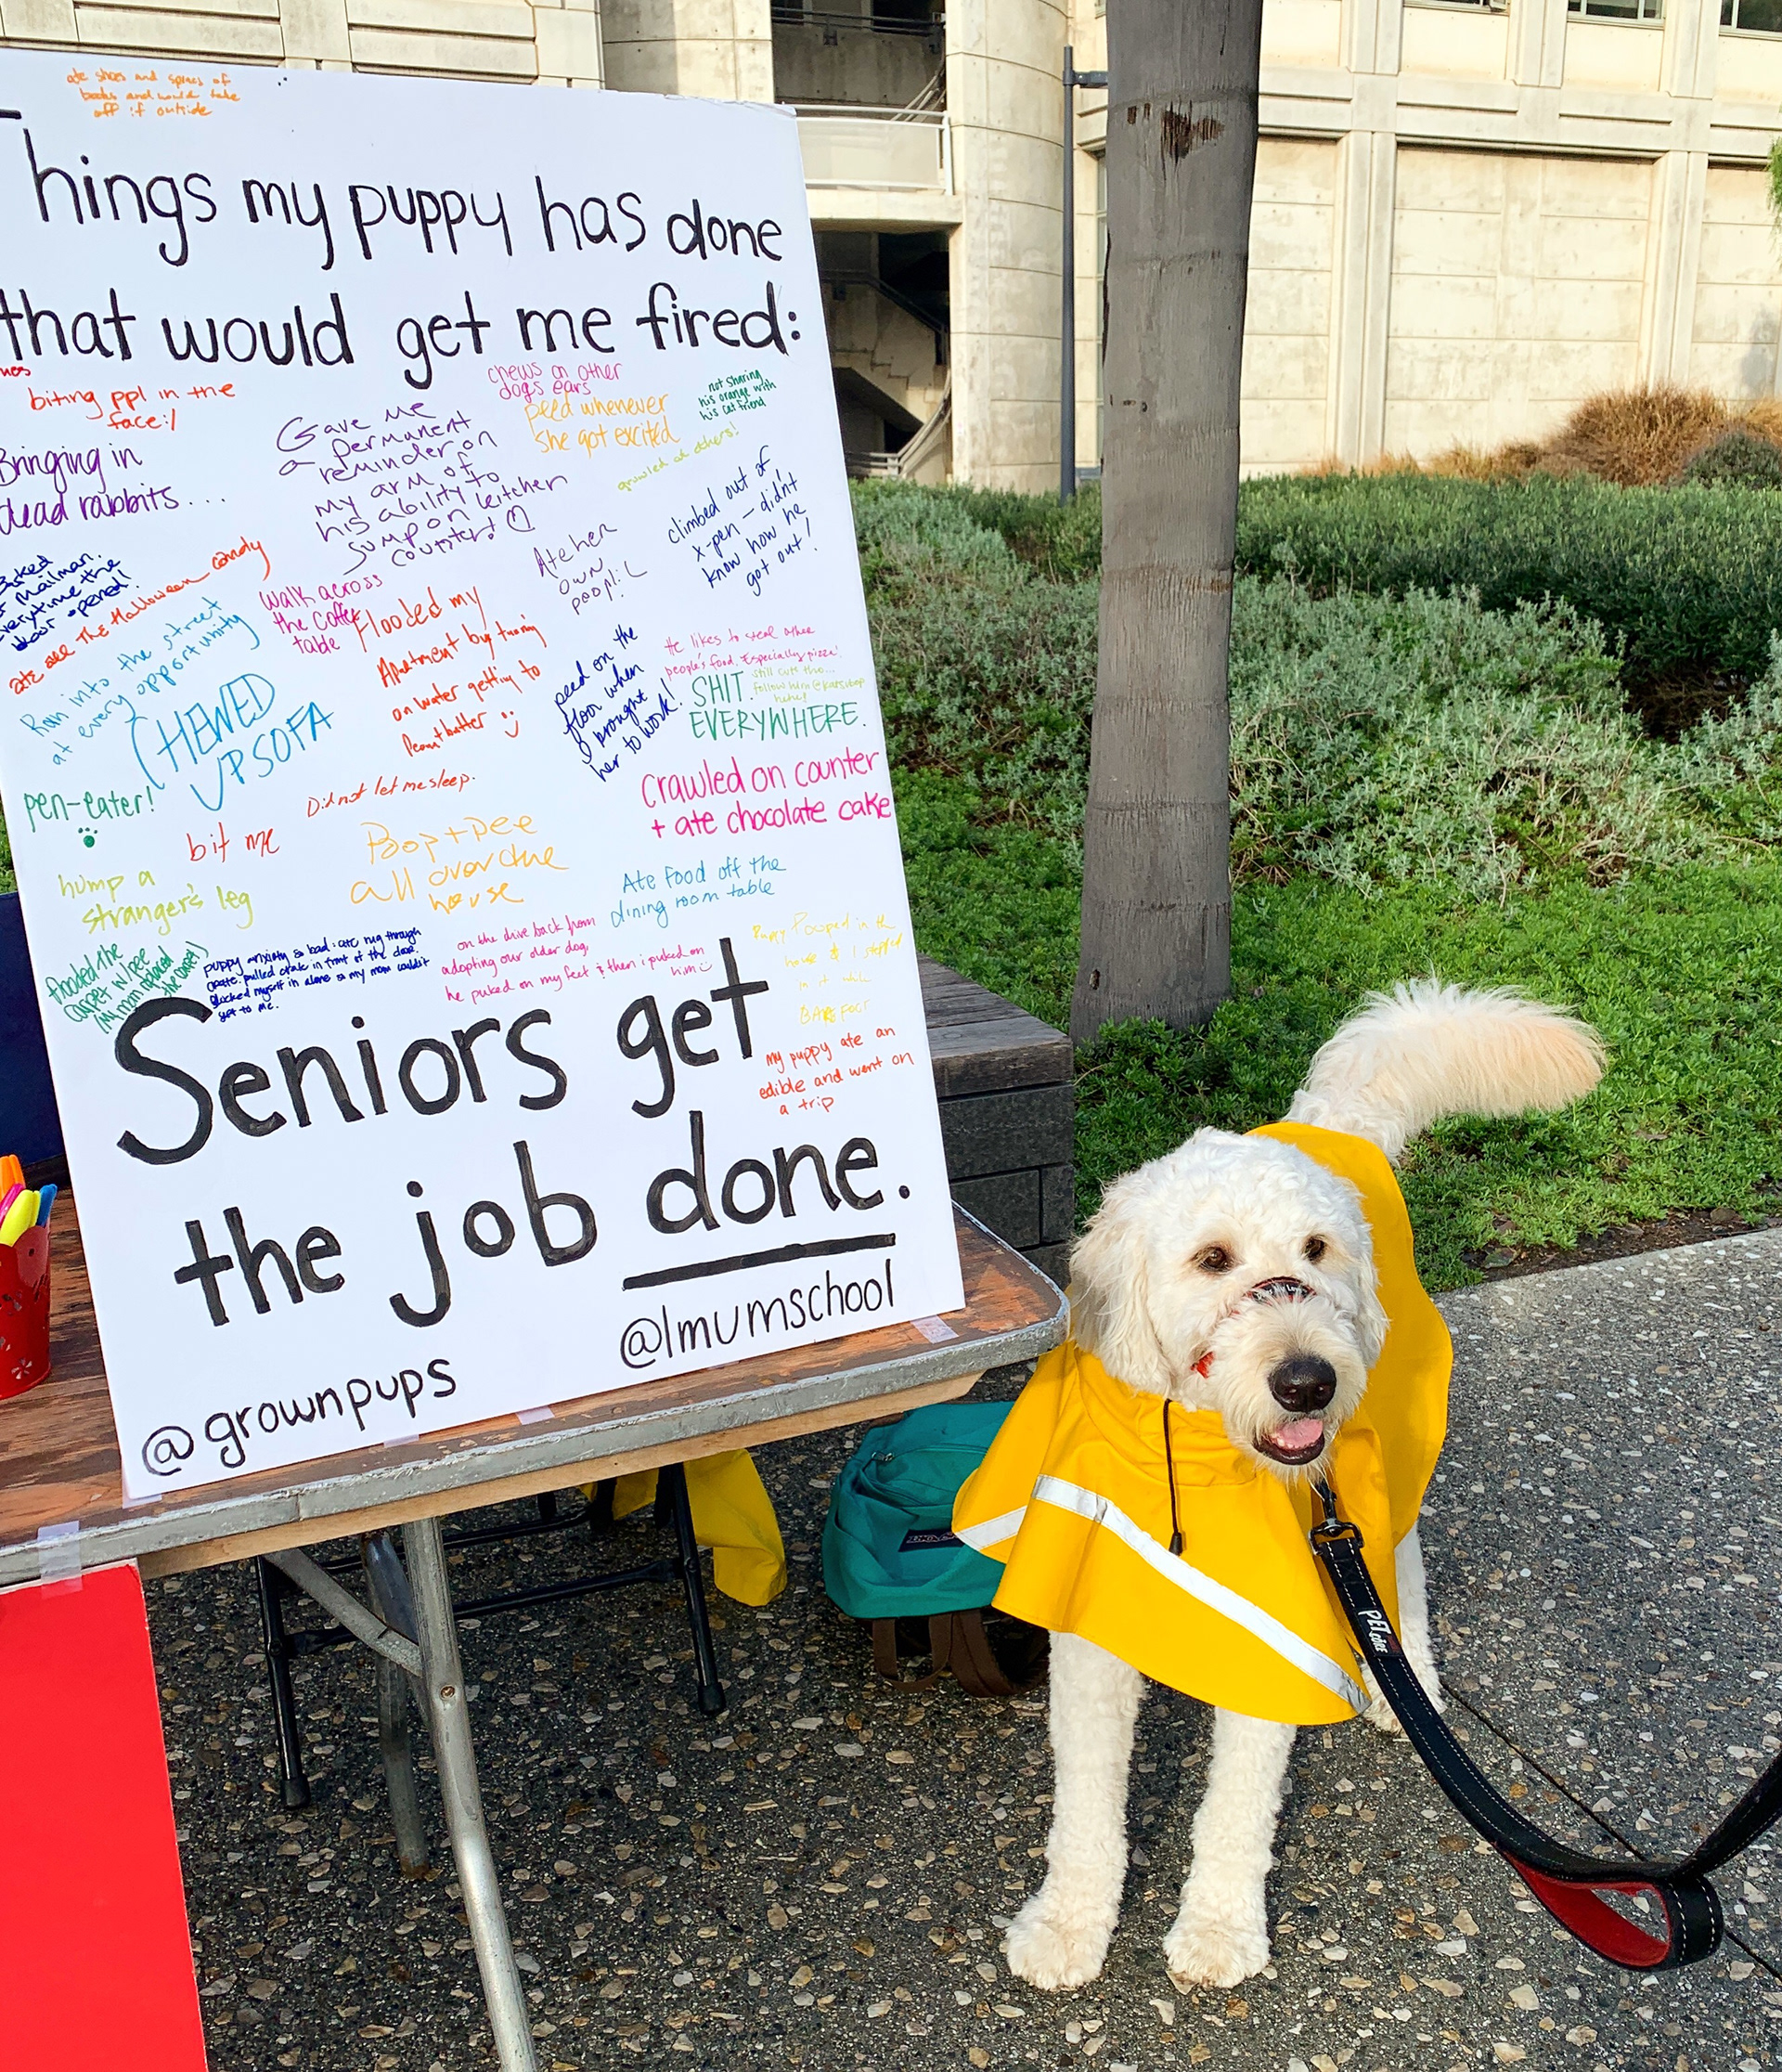 ate shoes and
books and would take
off if outside
Things my puppy has done
that would get me fired:
biting ppl in the
face:/
chews on other
dogs ears
peed whenever
she got excited
not sharing
his orange with
his cat friend
growled at others!
Bringing in
dead rabbits...
Gave me
a permanent
reminder on
my arm of
his ability to
jump on kitchen
counters!
climbed out of
x-pen - didn't
know how he
got out!
Ate her
own
poop! :(
Barked
mailman.
everytime the
door opened!
ate all The Halloween candy
Ran into the street
at every opportunity
walk across
the coffee
table
Flooded my
Apartment by turning
on water getting to
Peanut butter :)
peed on the
floor when
I brought
her to work!
He likes to steal other
people's food. Especially pizza!
still cute tho...
follow him
hehe!
SHIT
EVERYWHERE.
CHEWED
UP SOFA
pen-eater!
bit me
Did not let me sleep.
Crawled on counter
+ ate chocolate cake
Poop + pee
all over the
house
hump a
stranger's leg
Ate food off the
dining room table
flooded the
carpet w/ pee
(my mom replaced
the carpet)
puppy anxiety so bad: ate rug through
crate. pulled in front of the door.
Blocked myself in alone so my mom couldn't
get to me.
on the drive back from
adopting our older dog,
he puked on my feet & then i puked on
him :)
Puppy Pooped in the
house & I stepped
in it while
BAREFOOT
my puppy ate an
edible and went on
a trip
Seniors get
the job done.
@lmumschool
@grownpups
PET